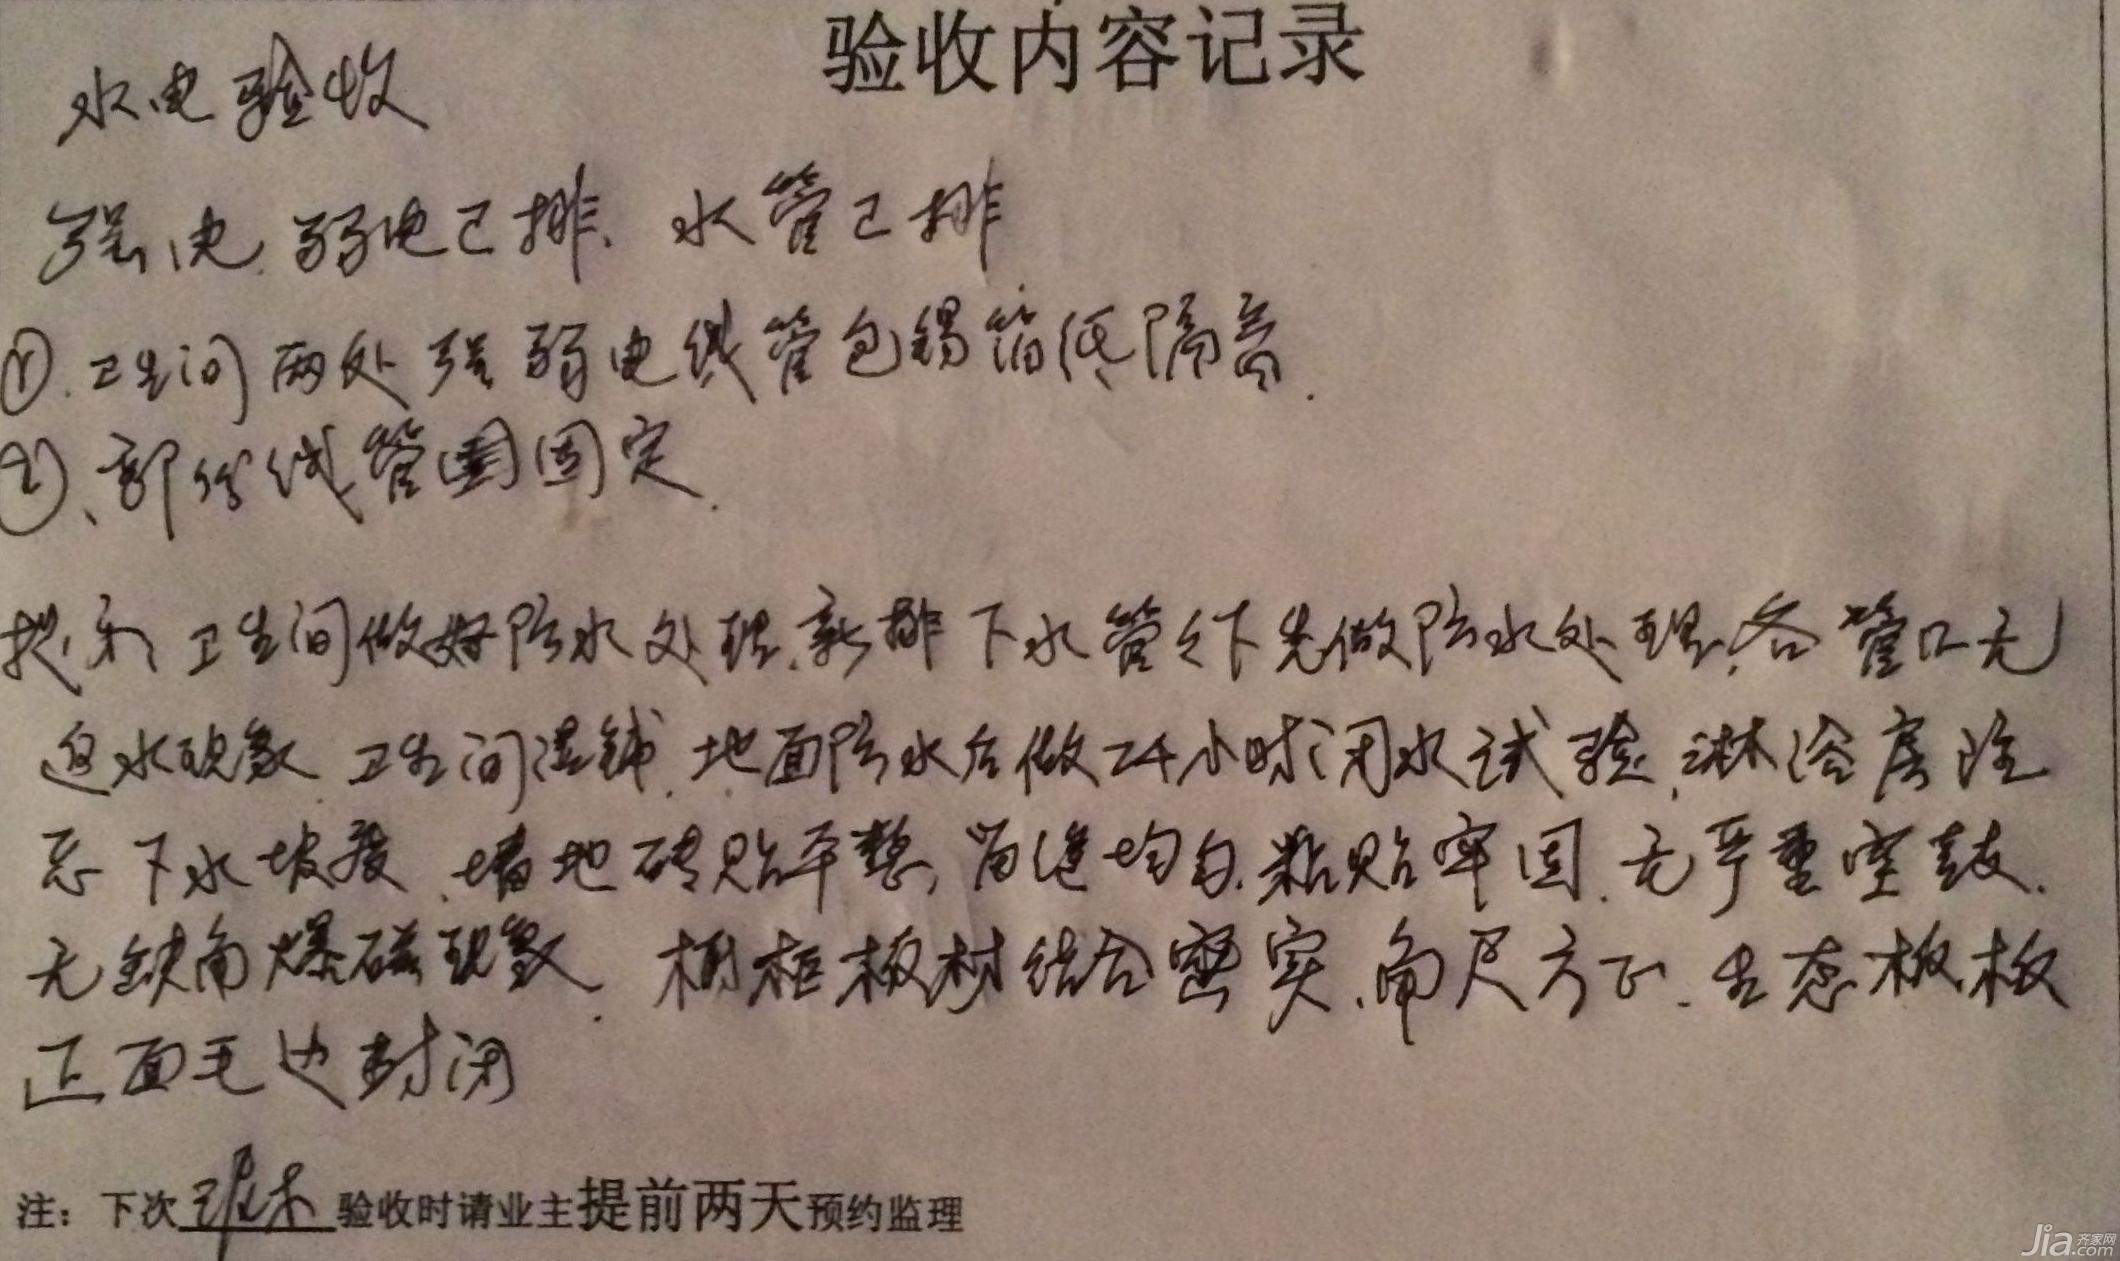 验收内容记录
水电验收
强电、弱电已排、水管已排
①、卫生间两处强弱电线管包锡箔纸隔音.
②、部份线管固定.
提示: 卫生间做好防水处理、新排下水管之下先做防水处理、各管口无
水现象、卫生间湿铺、地面防水后做24小时闭水试验、淋浴房注
意下水坡度、墙地砖贴平整、留缝均匀、粘贴牢固、无严重空鼓、
无缺角爆磁现象. 橱柜板材结合密实、角尺方正、生态板板
正面毛边封闭
注：下次泥木验收时请业主提前两天预约监理
Jia 齐家网 .com